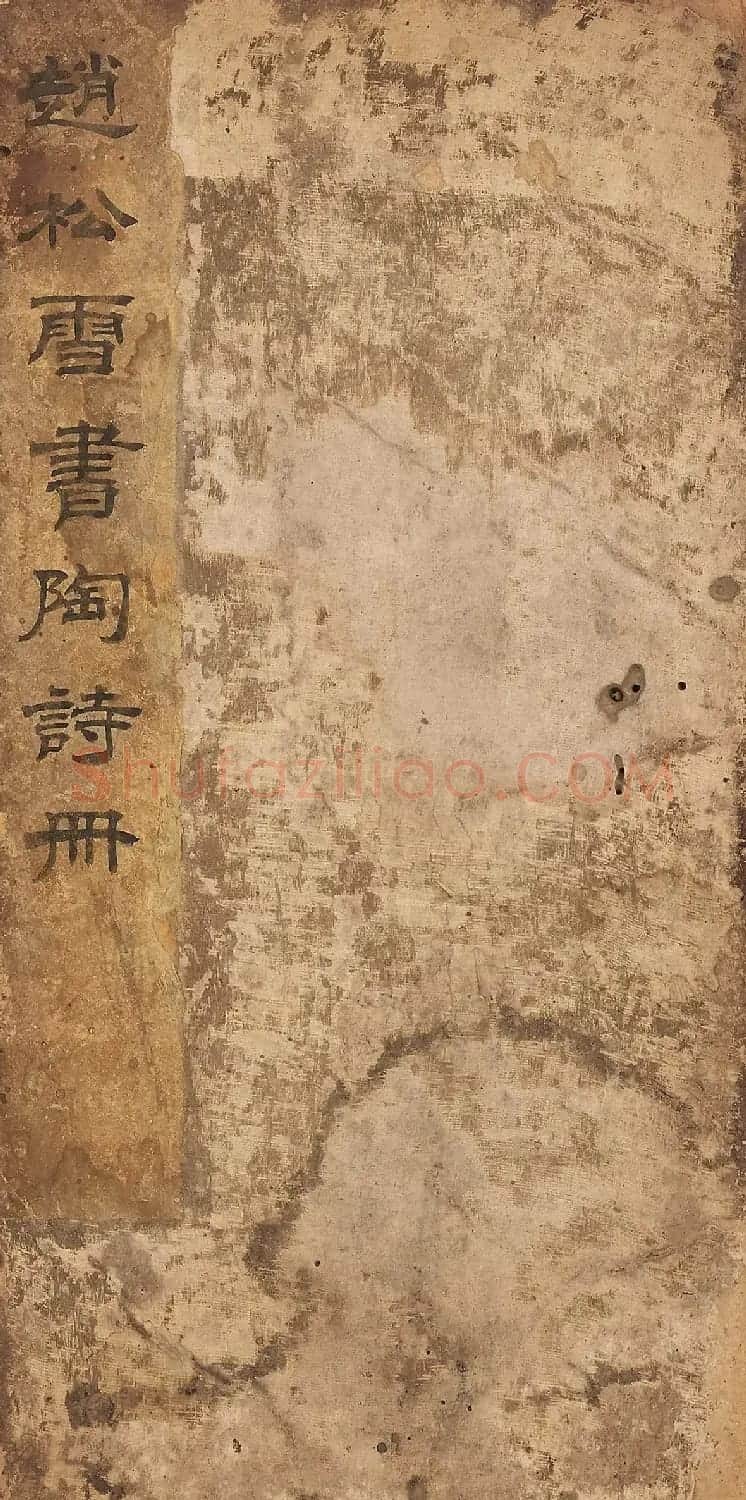 趙松雪書陶詩冊
shufaziliao.COM